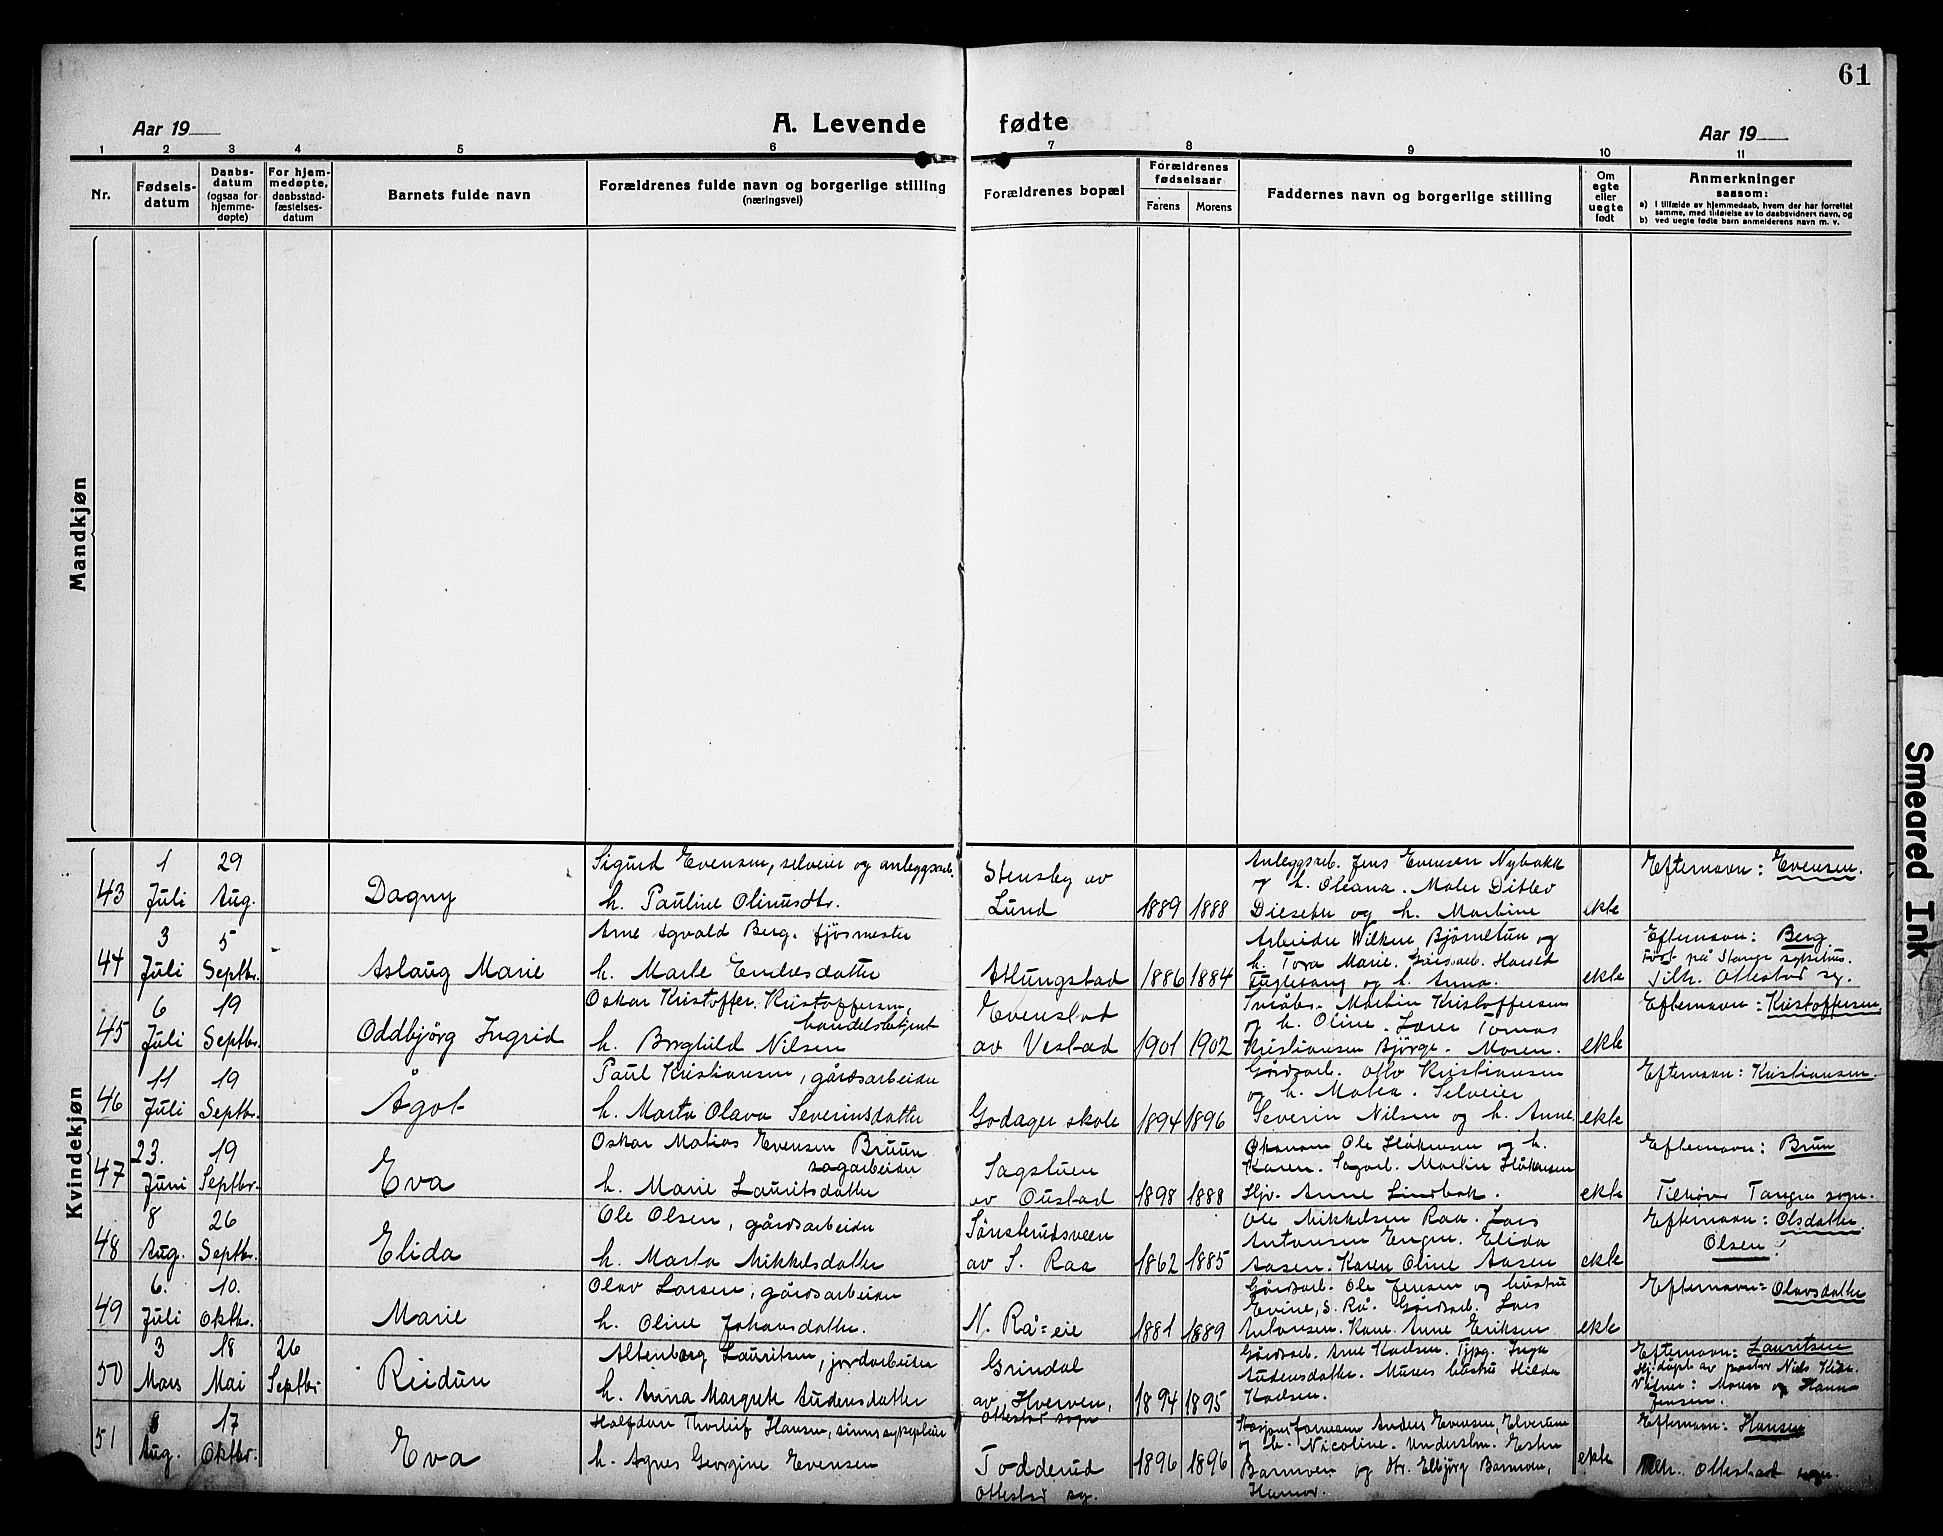 61
Aar 19
A. Levende
fødte
Aar 19
1 2 3 4 5 6 7 8 9 10 11
Nr.
Fødsels-
datum
Daabs-
datum
(ogsaa for
hjemme-
døpte)
For hjem-
medøpte,
daabsstad-
fæstelses-
datum
Barnets fulde navn
Forældrenes fulde navn og borgerlige stilling
(næringsvei)
Forældrenes bopæl
Forældrenes
fødselsaar
Farens
Morens
Faddernes navn og borgerlige stilling
Om
egte
eller
uegte
født
Anmerkninger
saasom:
a) I tilfælde av hjemmedaab, hvem der har forrettet
samme, med tilføielse av to daabsvidners navn, og
b) ved uegte fødte barn anmelderens navn m. v.
Mandkjøn
Kvindekjøn
43
1
Juli
29
Aug.
Dagny
Sigurd Evensen, selveier og anleggsarb.
h. Pauline Olinusdtr.
Stensby av
Lund
1889
1888
Anleggsarb. Jens Evensen Nybakk
og h. Oleana. Maler Ditlev
Dieseth og h. Martine
ekte
Efternavn: Evensen.
44
3
Juli
5
Septbr.
Aslaug Marie
Arne Agvald Berg. fjøsmester
h. Marte Endresdatter
Atlungstad
1886
1884
Arbeider Wilhem Bjørnetun og
h. Tora Marie. Gårdsarb. Harald
Fuglesang og h. Anna.
ekte
Efternavn: Berg.
født på Stange sykehus.
Tilh. Ottestad sg.
45
6
Juli
19
Septbr.
Oddbjörg Ingrid
Oskar Kristoffer Kristoffersen,
handelsbetjent
h. Borghild Nilsen
Evenstad
av Vestad
1901
1902
Småbr. Martin Kristoffersen
og h. Oline. Lærer Tomas
Kristiansen Bjørge. Moren.
ekte
Efternavn: Kristoffersen.
46
11
Juli
19
Septbr.
Ågot
Paul Kristiansen, gårdsarbeider
h. Marta Olava Severinsdatter
Godager skole
1894
1896
Gårdsarb. Otto Kristiansen
og h. Matea. Selveier
Severin Nilsen og h. Anne
ekte
Efternavn: Kristiansen.
47
23.
Juni
19
Septbr.
Eva
Oskar Matias Evensen Bruun
sagarbeider
h. Marie Lauritsdatter
Sagstuen
av Oustad
1898
1888
Økonom Ole Håkensen og h.
Karen. Sagarb. Martin Håkensen
Hjv. Anne Lindbak.
ekte
Efternavn: Brun
Tilhører Tangen sogn.
48
8
Aug.
26
Septbr.
Elida
Ole Olsen, gårdsarbeider
h. Marta Mikkelsdatter
Sønsterudsveen
av S. Raa
1862
1885
Ole Mikkelsen Raa. Lars
Antonsen Engen. Elida
Aasen. Karen Oline Aasen
ekte
Efternavn: Olsdatter.
Olsen!
49
6.
Juli
10.
Oktbr.
Marie
Olav Larsen, gårdsarbeider
h. Oline Johansdatter.
N. Rå=eie
1881
1889
Gårdsarb. Ole Jensen og hustru
Evine, S. Rå. Gårdsarb. Lars
Antonsen. Kone Anne Eriksen
ekte
Efternavn: Olavsdatter
50
3
Mars
18
Mai
26
Septbr
Reidun
Altenborg Lauritsen, jordarbeider
h. Anna Margrete Audensdatter
Grindal
av, Hverven,
Ottestad sogn
1894
1895
Gårdsarb. Arne Karlsen. Tjpg. Inga
Audensdatter. Murers hustru Hilda
Karlsen.
Efternavn: Lauritsen
Hj.døpt av pastor Niels
Vidner: Moren og Hanna
Jensen.
51
8
Aug.
17
Oktbr.
Eva
Halfdan Thorleif Hansen, sinnssykepleier
h. Agnes Georgine Evensen
Todderud
Ottestad sg.
1896
1896
Stasjonsformann Anders Evensen, Elverum
og h. Nicoline. Underslm. Esten
Barmoen og dtr. Ellbjörg Barmoen,
Hamar.
ekte
Efternavn: Hansen
Tilh. Ottestad sogn.
Smeared Ink